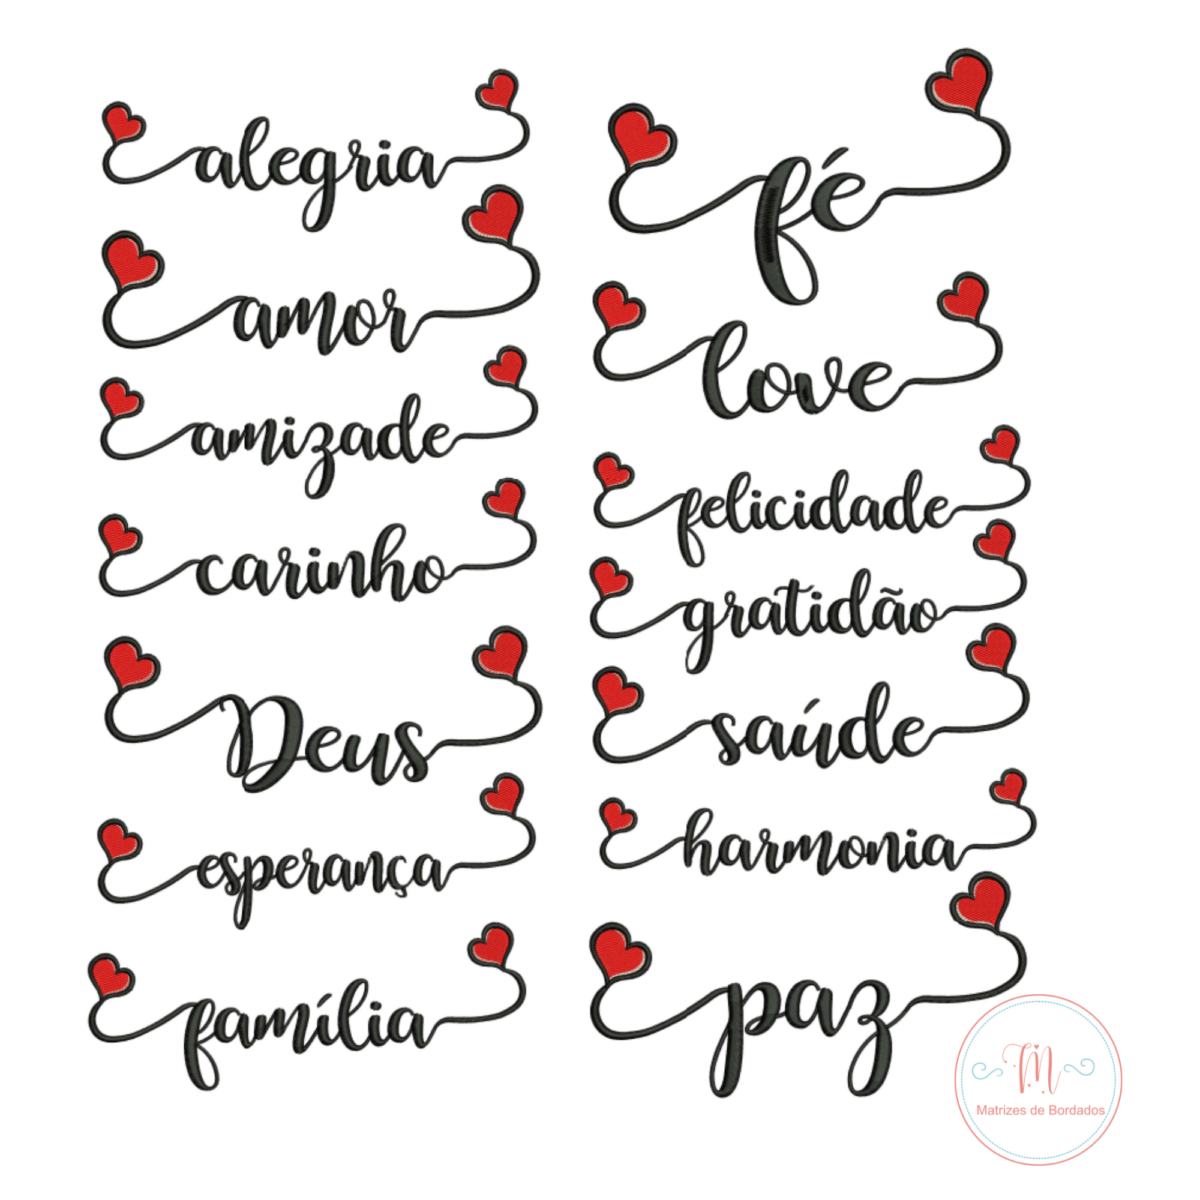 alegria
amor
amizade
carinho
Deus
esperança
família
fé
love
felicidade
gratidão
saúde
harmonia
paz
M
Matrizes de Bordados